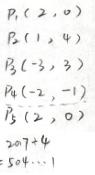 P₁(2,0)
P₂(1,4)
P₃(-3,3)
P₄(-2,-1)
P₅(2,0)
2017÷4
=504…1